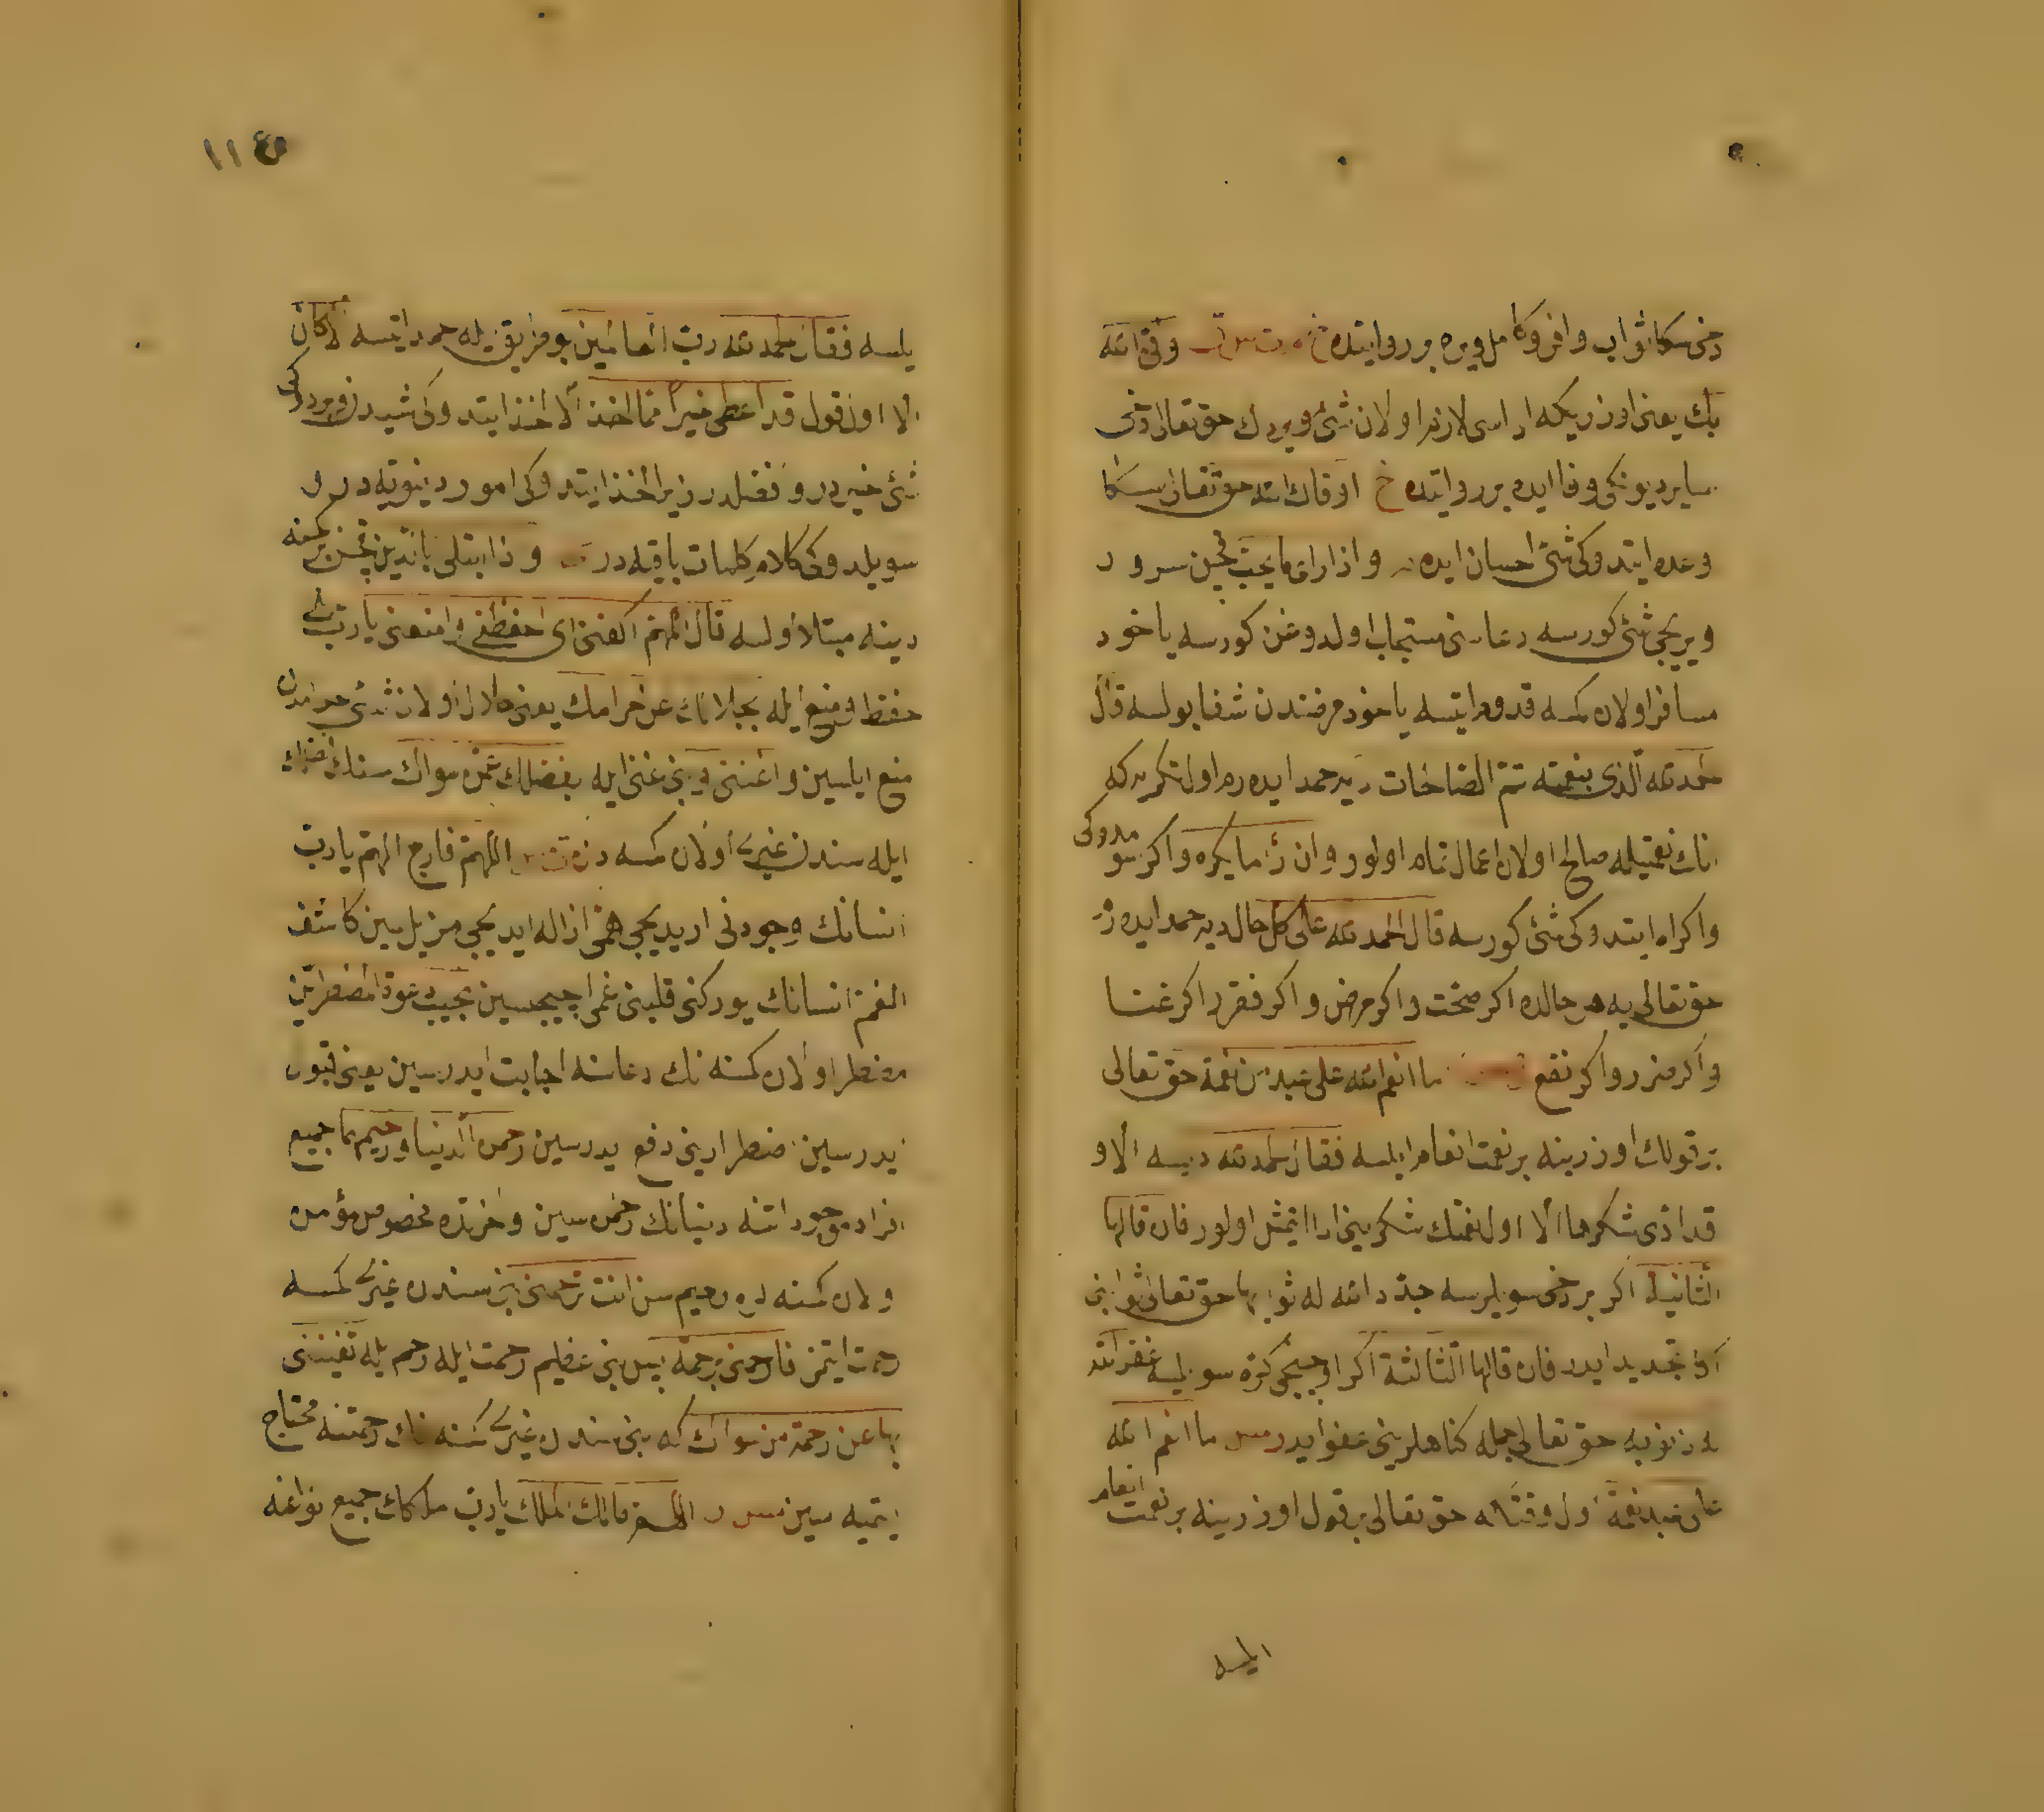 دخی سكا ثواب وافر وكامل ویره بر روایتده خ م ت س ق وفی الله
بك یعنی اوزریكه اداسی لازم اولان شئ ویردك حق تعالی دخی
سایر دیونكی وفا ایده بر روایتده خ اوفاك الله حق تعالی سكا
وعده ایتدوكی شئ احسان ایده واذا رای ما یحب قچن سرور
ویریجی شئ كورسه دعاسنی مستجاب اولدوغن كورسه یاخود
مسافر اولان كمسه قدوم ایتسه یاخود مرضندن شفا بولسه قال
الحمد لله الذی بنعمته تتم الصالحات دیه حمد ایده رم اول تكری یه كه
انك نعمتیله صالح اولان اعمال تمام اولور وان رأى ما یكره واكر سومدوكی
واكراه ایتدوكی شئ كورسه قال الحمد لله على كل حال دیه حمد ایده رم
حق تعالی یه هر حالده اكر صحت واكر مرض واكر فقر واكر غنا
واكر ضرر واكر نفع ما انعم الله على عبد من نعمة حق تعالی
بر قولك اوزرینه بر نعمت انعام ایلسه فقال الحمد لله دیسه الا و
قد ادى شكرها الا اول نعمتك شكرینی ادا ایتمش اولور فان قالها
الثانیة اكر بر دخی سویلرسه جدد الله له ثوابها حق تعالی ثوابنی
اكا تجدید ایدر فان قالها الثالثة اكر اوچنجی كره سویلسه غفر الله
له ذنوبه حق تعالی جمله كناهلرینی عفو ایدر مس ما انعم الله
على عبد نعمة اول وقتكه حق تعالی بر قول اوزرینه بر نعمت انعام
ایلسه
١١٤
یلسه فقال الحمد لله رب العالمین بو طریق ایله حمد ایتسه الا كان
الا اول قول قد اعطى خیرا مما اخذ الا اخذ ایتدوكی شیدن ویردوكی
شئ خیردر وفضلدر زیرا اخذ ایتدوكی امور دنیویه در و
سویلدوكی كلام كلمات باقیه در واذا ابتلی بالدین قچن بر كمسنه
دینه مبتلا اولسه قال اللهم اكفنی ای احفظنی وامنعنی یا رب بنی
حفظ ومنع ایله بحلالك عن حرامك یعنی حلال اولان شئی حرامدن
منع ایلیسین واغننی وبنی غنی ایله بفضلك عمن سواك سنك فضلك
ایله سندن غیری اولان كمسه دن ت مس اللهم فارج الهم یا رب
انسانك وجودنی اریدیجی همی ازاله ایدیجی مزیل سین كاشف
الغم انسانك یوركنی قلبنی غمی اچیجیسین مجیب دعوة المضطرین
مضطر اولان كمسنه نك دعاسنه اجابت ایدرسین یعنی قبول
ایدرسین اضطرارینی دفع ایدرسین رحمن الدنیا ورحیمها جمیع
افراد موجوداتنه دنیانك رحمن سین واخرتده مخصوص مؤمن
اولان كمسنه لره رحیم سن انت ترحمنی بنی سندن غیری كمسه
رحمت ایتمز فارحمنی برحمة پس بنی عظیم رحمت ایله رحم ایله تغنینی
بها عن رحمة من سواك كه بنی سندن غیری كمسنه نك رحمتنه محتاج
ایتمیه سین مس ر اللهم مالك الملك یا رب ملكك جمیع انواعنه